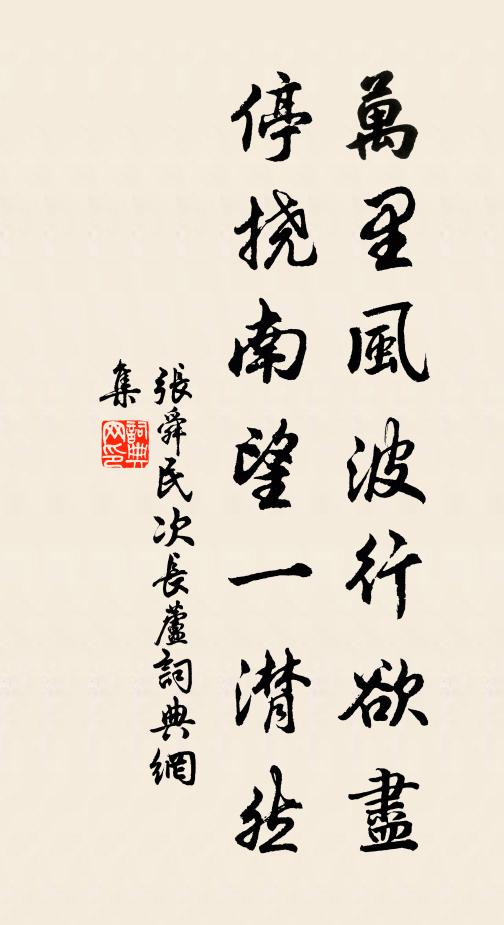 萬里風波行欲盡
停撓南望一潸然
張舜民次長蘆詞典網
集
詞典網印